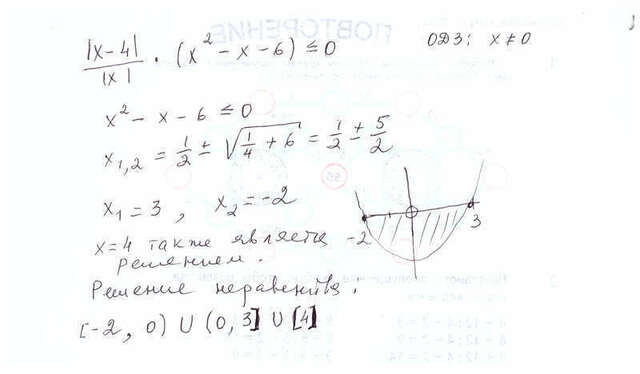 |x-4|/|x| · (x² - x - 6) ≤ 0   ОДЗ: x ≠ 0
x² - x - 6 ≤ 0
x₁,₂ = 1/2 ± √(1/4 + 6) = 1/2 ± 5/2
x₁ = 3 , x₂ = -2
-2 3
x=4 также является
решением.
Решение неравенства:
[-2, 0) ∪ (0, 3] ∪ [4]